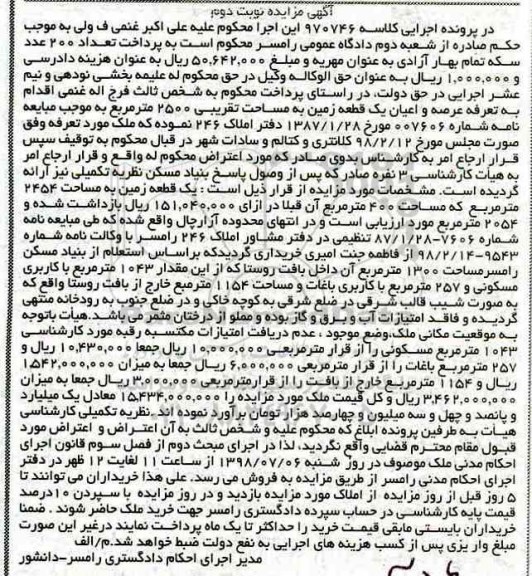 آگهی مزایده نوبت دوم
در پرونده اجرایی کلاسه ۹۷۰۷۴۶ این اجرا محکوم علیه علی اکبر غنمی ف ولی به موجب
حکم صادره از شعبه دوم دادگاه عمومی رامسر محکوم است به پرداخت تعداد ۲۰۰ عدد
سکه تمام بهار آزادی به عنوان مهریه و مبلغ ۵۰,۶۴۲,۰۰۰ ریال به عنوان هزینه دادرسی
و ۱,۰۰۰,۰۰۰ ریال به عنوان حق الوکاله وکیل در حق محکوم له علیمه بخشی نودهی و نیم
عشر اجرایی در حق دولت، در راستای پرداخت محکوم به شخص ثالث فرخ اله غنمی اقدام
به تعرفه عرصه و اعیان یک قطعه زمین به مساحت تقریبی ۲۵۰۰ مترمربع به موجب مبایعه
نامه شماره ۰۰۷۶۰۶ مورخ ۱۳۸۷/۱/۲۸ دفتر املاک ۲۴۶ نموده که ملک مورد تعرفه وفق
صورت مجلس مورخ ۹۸/۲/۱۲ کلانتری و کتالم و سادات شهر در قبال محکوم به توقیف سپس
قرار ارجاع امر به کارشناس بدوی صادر که مورد اعتراض محکوم له واقع و قرار ارجاع امر
به هیأت کارشناسی ۳ نفره صادر که پس از وصول پاسخ بنیاد مسکن نظریه تکمیلی نیز ارائه
گردیده است. مشخصات مورد مزایده از قرار ذیل است : یک قطعه زمین به مساحت ۲۴۵۴
مترمربع که مساحت ۴۰۰ مترمربع آن قبلا در ازای ۱۵۱,۰۴۰,۰۰۰ ریال بازداشت شده و
۲۰۵۴ مترمربع مورد ارزیابی است و در انتهای محدوده آزارچال واقع شده که طی مبایعه نامه
شماره ۷۶۰۶-۸۷/۱/۲۸ تنظیمی در دفتر مشاور املاک ۲۴۶ رامسر با وکالت نامه شماره
۹۵۴۳-۹۸/۲/۱۴ از فاطمه جنت امیری خریداری گردیدکه براساس استعلام از بنیاد مسکن
رامسرمساحت ۱۳۰۰ مترمربع آن داخل بافت روستا که از این مقدار ۱۰۴۳ مترمربع با کاربری
مسکونی و ۲۵۷ مترمربع با کاربری باغات و مساحت ۱۱۵۴ مترمبع خارج از بافت روستا واقع که
به صورت شیب قالب شرقی در ضلع شرقی به کوچه خاکی و در ضلع جنوب به رودخانه منتهی
گردیده و فاقد امتیازات آب و برق و گاز بوده و مملو از درختان مثمری می باشد.هیأت باتوجه
به موقعیت مکانی ملک،وضع موجود ، عدم دریافت امتیازات مکتسبه رقبه مورد کارشناسی
۱۰۴۳ مترمربع مسکونی را از قرار مترمربعی ۱۰۰۰۰۰۰۰ ریال جمعا ۱۰,۴۳۰,۰۰۰ ریال و
۲۵۷ مترمربع باغات را از قرار مترمربعی ۶,۰۰۰,۰۰۰ ریال جمعا به میزان ۱,۵۴۲,۰۰۰,۰۰۰
ریال و ۱۱۵۴ مترمربع خارج از بافت را از قرارمترمربعی ۳,۰۰۰,۰۰۰ ریال جمعا به میزان
۳,۴۶۲,۰۰۰,۰۰۰ ریال و کل قیمت ملک مورد مزایده را ۱۵,۴۳۴,۰۰۰,۰۰۰ معادل یک میلیارد
و پانصد و چهل و سه میلیون و چهارصد هزار تومان برآورد نموده اند .نظریه تکمیلی کارشناسی
هیأت به طرفین پرونده ابلاغ که محکوم علیه و شخص ثالث به آن اعتراض و اعتراض مورد
قبول مقام محترم قضایی واقع نگردید، لذا در اجرای مبحث دوم از فصل سوم قانون اجرای
احکام مدنی ملک موصوف در روز شنبه ۱۳۹۸/۰۷/۰۶ از ساعت ۱۱ لغایت ۱۲ ظهر در دفتر
اجرای احکام مدنی رامسر از طریق مزایده به فروش می رسد. علی هذا خریداران می توانند تا
۵ روز قبل از روز مزایده از املاک مورد مزایده بازدید و در روز مزایده با سپردن ۱۰درصد
قیمت پایه کارشناسی در حساب سپرده دادگستری رامسر جهت خرید ملک حاضر شوند . ضمنا
خریداران بایستی مابقی قیمت خرید را حداکثر تا یک ماه پرداخت نمایند درغیر این صورت
مبلغ واریزی پس از کسب هزینه های اجرایی به نفع دولت ضبط خواهد شد.م/الف
مدیر اجرای احکام دادگستری رامسر-دانشور